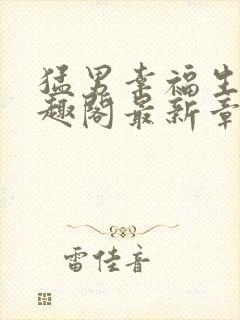 猛男幸福生
趣阁最新章
雷佳音